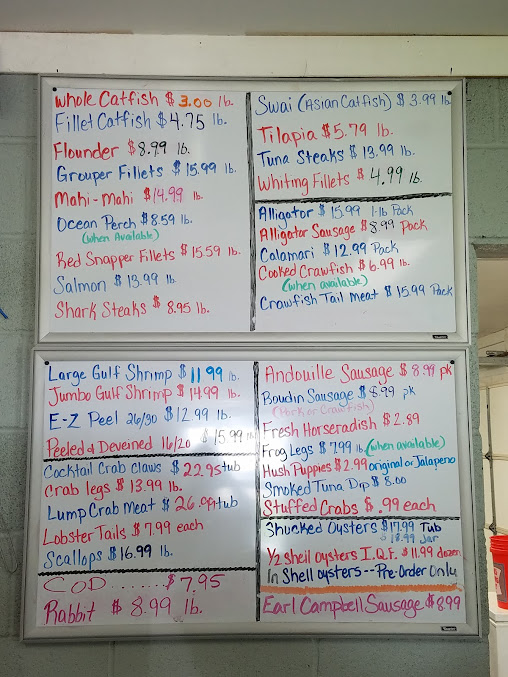 Whole Catfish $3.00 lb.
Fillet Catfish $4.75 lb.
Flounder $8.99 lb.
Grouper Fillets $15.99 lb.
Mahi-Mahi $14.99 lb.
Ocean Perch $8.59 lb.
(When Available)
Red Snapper Fillets $15.59 lb.
Salmon $13.99 lb.
Shark Steaks $8.95 lb.
Swai (Asian Catfish) $3.99 lb
Tilapia $5.79 lb.
Tuna Steaks $13.99 lb.
Whiting Fillets $4.99 lb.
Alligator $15.99 1-lb Pack
Alligator Sausage $8.99 Pack
Calamari $12.99 Pack
Cooked Crawfish $6.99 lb.
(when available)
Crawfish Tail Meat $15.99 Pack
Large Gulf Shrimp $11.99 lb.
Jumbo Gulf Shrimp $14.99 lb.
E-Z Peel 26/30 $12.99 lb.
Peeled & Deveined 16/20 $15.99 lb
Cocktail Crab Claws $22.95 tub
Crab legs $13.99 lb.
Lump Crab Meat $26.99 tub
Lobster Tails $7.99 each
Scallops $16.99 lb.
COD.......$7.95
Rabbit $8.99 lb.
Andouille Sausage $8.99 pk
Boudin Sausage $8.99 pk
(Pork or Crawfish)
Fresh Horseradish $2.89
Frog Legs $7.99 lb. (when available)
Hush Puppies $2.99 original or Jalapeno
Smoked Tuna Dip $8.00
Stuffed Crabs $.99 each
Shucked Oysters $17.99 Tub
$18.99 Jar
1/2 shell oysters I.Q.F. $11.99 dozen
In Shell oysters -- Pre-Order Only
Earl Campbell Sausage $8.99